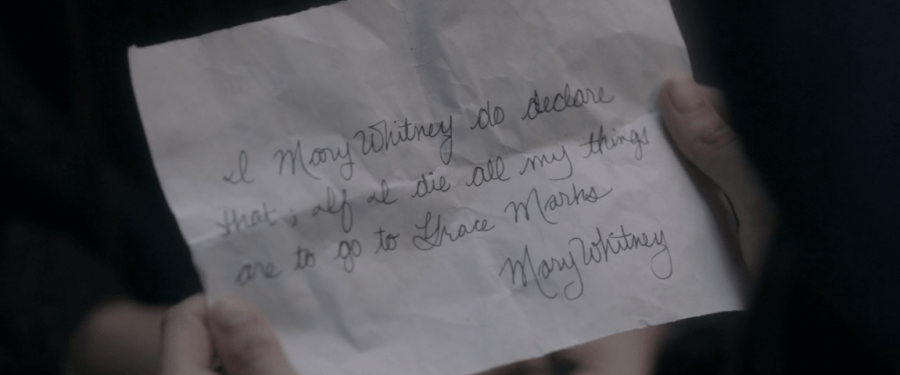 I Mary Whitney do declare
that; If I die all my things
are to go to Grace Marks
Mary Whitney